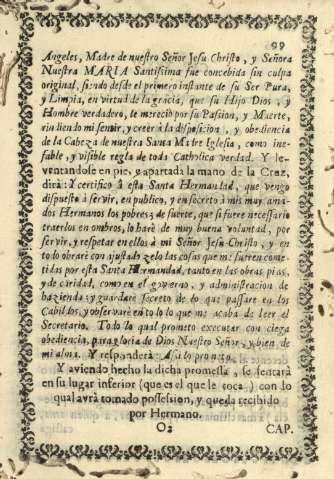 99
Angeles, Madre de nuestro Señor Jesu Christo, y Señora
Nuestra MARIA Santissima fue concebida sin culpa
original, siendo desde el primero instante de su Ser Pura,
y Limpia, en virtud de la gracia, que su Hijo Dios, y
Hombre verdadero, te merecio por su Passion, y Muerte,
rindiendo mi sentir, y creer à la disposicion, y obediencia
de la Cabeza de nuestra Santa Matre Iglesia, como ine-
fable, y visible regla de toda Catholica verdad. Y le-
ventandose en pie, y apartada la mano de la Cruz,
dirà: Y certifico à esta Santa Hermandad, que vengo
dispuesto à servir, en publico, y en secreto à mis muy ama-
dos Hermanos los pobres; de suerte, que si fuere necessario
traerlos en ombros, lo harè de muy buena voluntad, por
servir, y respetar en ellos à mi Señor Jesu-Christo, y en
todo obrarè con ajustado zelo las cosas que me fueren come-
tidas por esta Santa Hermandad, tanto en las obras pias,
y de caridad, como en el govierno, y administracion de
hazienda; y guardarè secreto de lo que passare en los
Cabildos, y observarè en todo lo que me acaba de leer el
Secretario. Todo lo qual prometo executar con ciega
obediencia, para gloria de Dios Nuestro Señor, y bien de
mi alma. Y responderà: Asi lo prometo.
Y aviendo hecho la dicha promessa, se sentarà
en su lugar inferior (que es el que le toca) con lo
qual avrà tomado possession, y queda recibido
por Hermano.
O2 CAP.